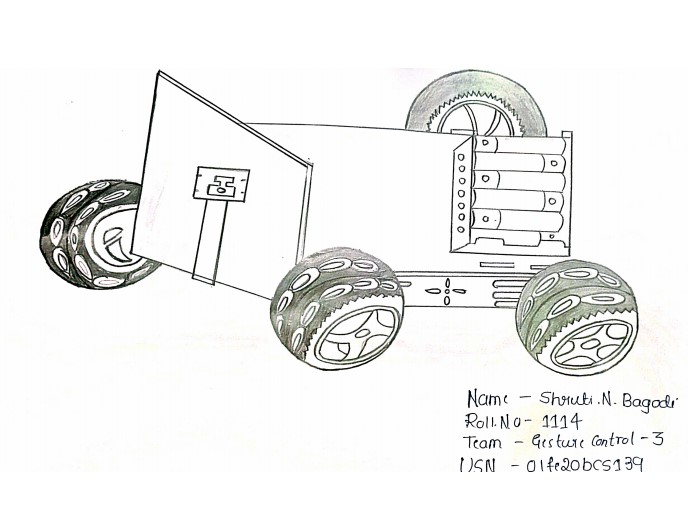 Name - Shruti.N. Bagadi
Roll.No - 1114
Team - Gesture Control - 3
USN - 01fe20bcs139